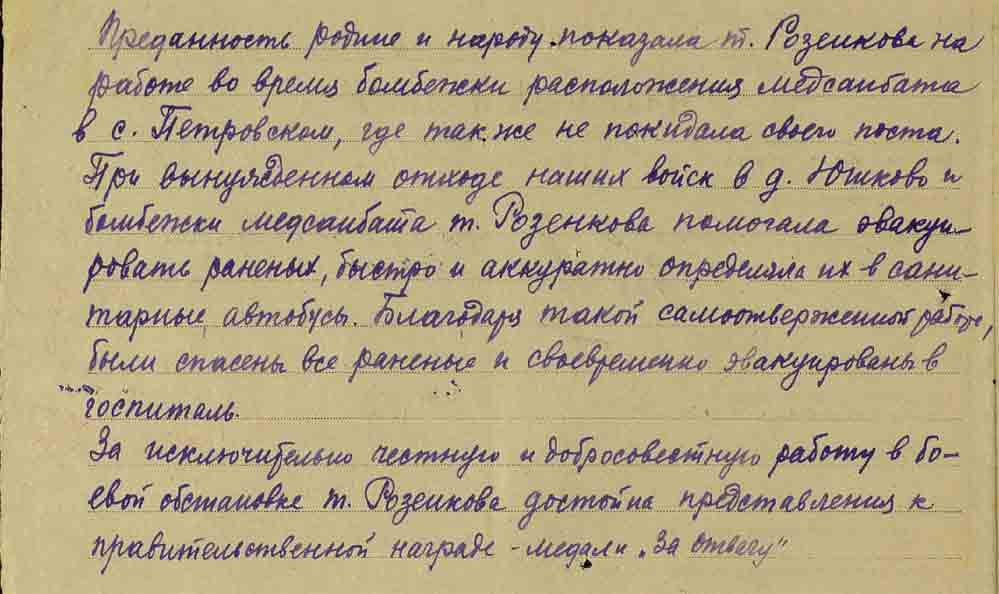 Преданность родине и народу показала т. Розенкова на
работе во время бомбежки расположения медсанбата
в с. Петровском, где так же не покидала своего поста.
При вынужденном отходе наших войск в д. Юшково и
бомбежки медсанбата т. Розенкова помогала эвакуи-
ровать раненых, быстро и аккуратно определяла их в сани-
тарные автобусы. Благодаря такой самоотверженной работе,
были спасены все раненые и своевременно эвакуированы в
госпиталь.
За исключительно честную и добросовестную работу в бо-
евой обстановке т. Розенкова достойна представления к
правительственной награде - медали „За отвагу"